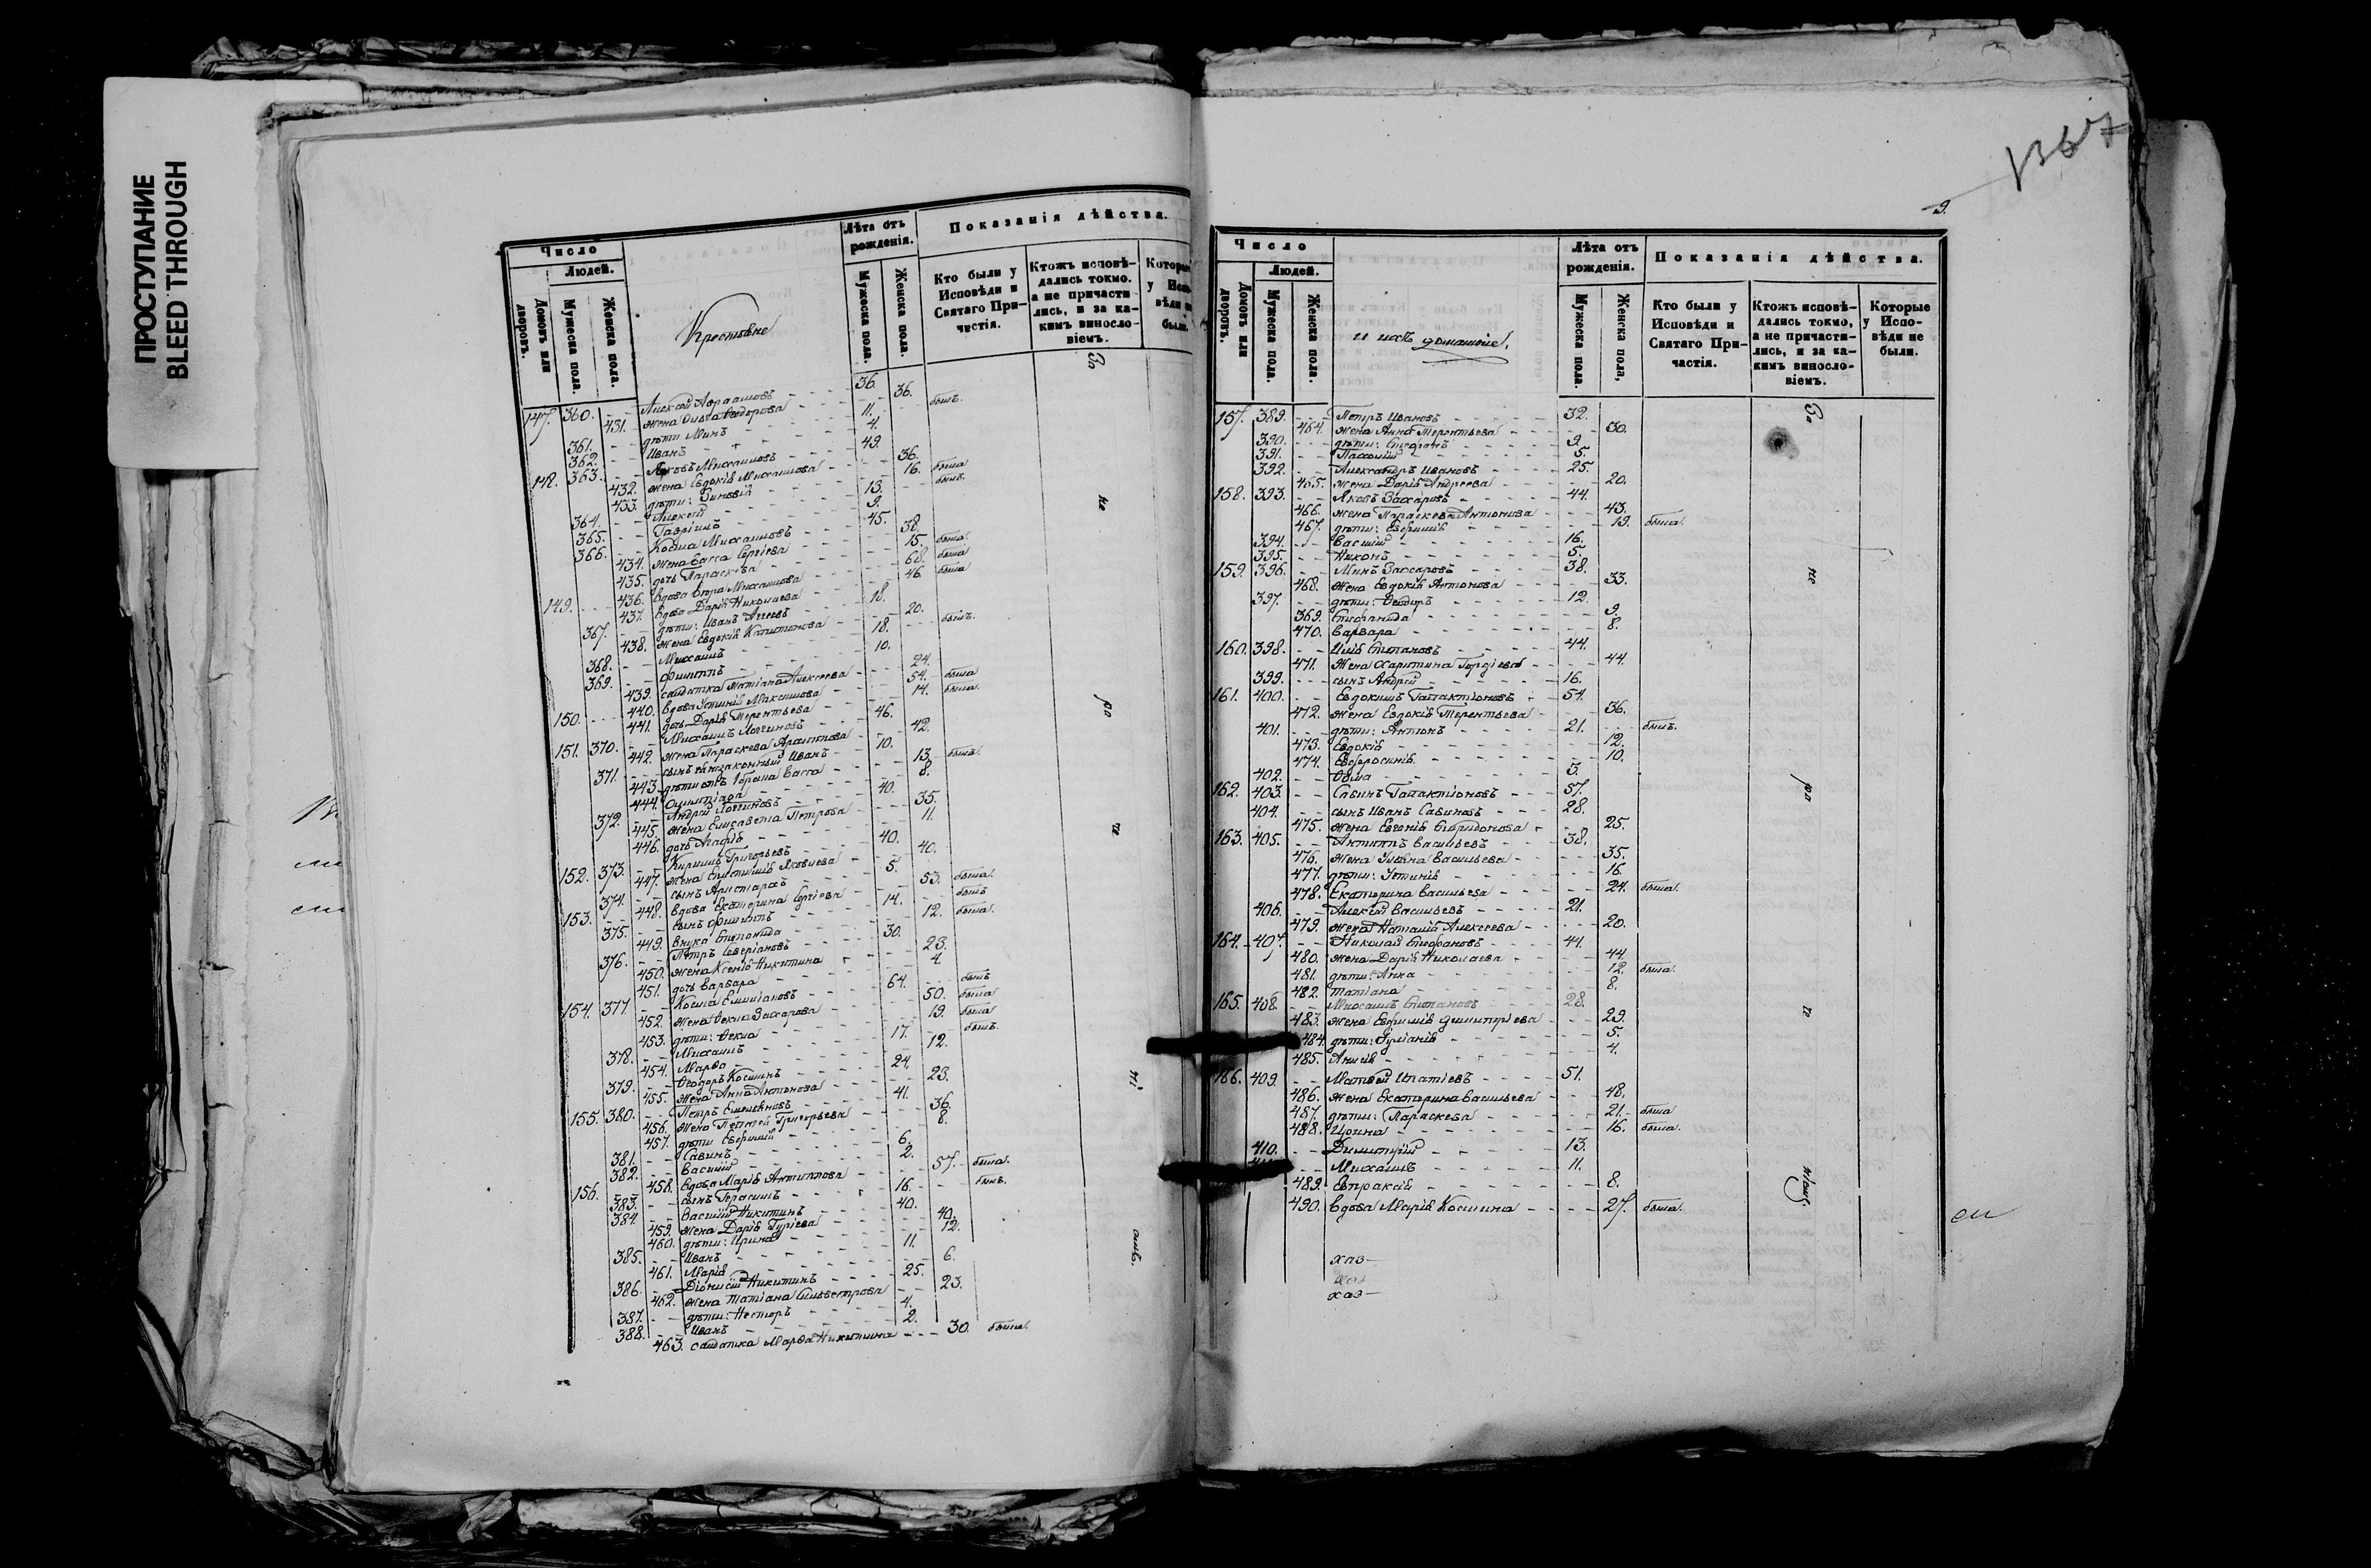 ПРОСТУПАНИЕ
BLEED THROUGH
Число
Людей.
Домовъ или дворовъ.
Мужеска пола.
Женска пола.
Крестьяне
Лѣта отъ рожденія.
Мужеска пола.
Женска пола.
Показанія дѣйства.
Кто были у Исповѣди и Святаго Причастія.
Ктожъ исповѣдались токмо. а не причастились, и за какимъ винословіемъ.
Которые у Исповѣди не были.
147. 360. Алексѣй Авраамовъ 36.
431. жена Ольга Ѳеодорова 36.
361. дѣти Минъ 11. былъ.
362. Иванъ 4.
148. 363. Яковъ Михаиловъ 49.
432. жена Евдокія Михаилова 36.
433. дѣти: Зиновія 16. была
364. Алексѣй 13. былъ
365. Гавріилъ 9.
366. Косма Михаиловъ 45.
434. жена Васса Сергіева 38.
435. дочь Параскева 15. была.
149. 436. вдова Вѣра Михаилова 68. была
437. вдова Дарія Николаева 46. была
367. дѣти: Иванъ Агеевъ 18.
438. жена Евдокія Капитонова 20.
368. Михаилъ 18. былъ.
369. Филиппъ 10.
439. солдатка Татіана Алексеева 24.
150. 440. вдова Устинія Максимова 54. была
441. дочь Дарія Терентьева 14. была.
151. 370. Михаилъ Логиновъ 46.
442. жена Параскева Архиппова 42.
371. сынъ незаконный Иванъ 10.
443. Васса 13. была.
444. Олимпіада 8.
372. Андрей Логгиновъ 40.
445. жена Елисавета Петрова 35.
446. дочь Агафія 11.
152. 373. Кириллъ Григорьевъ 40.
447. жена Евѳимія Яковлева 40.
374. сынъ Аристархъ 5.
153. 448. вдова Екатерина Сергіева 53. была.
375. сынъ Филиппъ 14. былъ
449. внука Степанида 12. была.
376. Петръ Северіановъ 30.
450. жена Ксенія Никитина 23.
451. дочь Варвара 4.
154. 377. Косма Емиліановъ 64. былъ
452. жена Ѳекла Захарова 50. была
453. дѣти: Ѳекла 19. была
378. Михаилъ 17. былъ.
454. Марѳа 12.
379. Ѳеодоръ Косминъ 24.
455. жена Анна Антонова 23.
155. 380. Петръ Емельяновъ 41.
456. жена Пелагея Григорьева 36.
457. дѣти Евфимія 8.
381. Савинъ 6.
382. Василій 2.
156. 458. вдова Марія Антиппова 57. была.
383. сынъ Герасимъ 16. былъ.
384. Василій Никитинъ 40.
459. жена Дарія Гуріева 40.
460. дѣти: Ирина 12.
385. Иванъ 11.
461. Марія 6.
386. Діонисій Никитинъ 25.
462. жена Татіана Сильвестрова 23.
387. дѣти: Несторъ 4.
388. Иванъ 2.
463. солдатка Марѳа Никитина 30. была.
За не ро че ні
1367
9.
Число
Людей.
Домовъ или дворовъ.
Мужеска пола.
Женска пола.
и ихъ домашніе.
Лѣта отъ рожденія.
Мужеска пола.
Женска пола.
Показанія дѣйства.
Кто были у Исповѣди и Святаго Причастія.
Ктожъ исповѣдались токмо, а не причастились, и за какимъ винословіемъ.
Которые у Исповѣди не были.
157. 389. Петръ Ивановъ 32.
464. жена Анна Терентьева 30.
390. дѣти: Стефанъ 9.
391. Пахомій 5.
392. Александръ Ивановъ 25.
465. жена Дарія Андреева 20.
158. 393. Яковъ Захаровъ 44.
466. жена Параскева Антонова 43.
467. дѣти: Евфимія 19. была.
394. Василій 16.
395. Никонъ 5.
159. 396. Минъ Захаровъ 38.
468. жена Евдокія Антонова 33.
397. дѣти: Ѳеодоръ 12.
369. Степанида 9.
470. Варвара 8.
160. 398. Илія Степановъ 44.
471. жена Харитина Гордіева 44.
399. сынъ Андрей 16.
161. 400. Евдокимъ Галактіоновъ 54.
472. жена Евдокія Терентьева 36.
401. дѣти: Антонъ 21. былъ.
473. Евдокія 12.
474. Евфросинія 10.
402. Ѳома 3.
162. 403. Савинъ Галактіоновъ 57.
404. сынъ Иванъ Савиновъ 28.
475. жена Евгенія Спиридонова 25.
163. 405. Антиппъ Васильевъ 38.
476. жена Ульяна Васильева 35.
477. дѣти: Устинія 16.
478. Екатерина Васильева 24. была.
406. Алексѣй Васильевъ 21.
479. жена Наталія Алексеева 20.
164. 407. Николай Стефановъ 44.
480. жена Дарія Николаева 44.
481. дѣти: Анна 12. была.
482. Татіана 8.
165. 408. Михаилъ Степановъ 28.
483. жена Евфимія Димитріева 29.
484. дѣти: Іуліанія 5.
485. Анисія 4.
166. 409. Матвей Ипатіевъ 51.
486. жена Екатерина Васильева 48.
487. дѣти: Параскева 21. была
488. Ирина 16. была.
410. Димитрій 13.
Михаилъ 11.
489. Евпраксія 8.
490. вдова Марія Космина 27. была.
За не ро